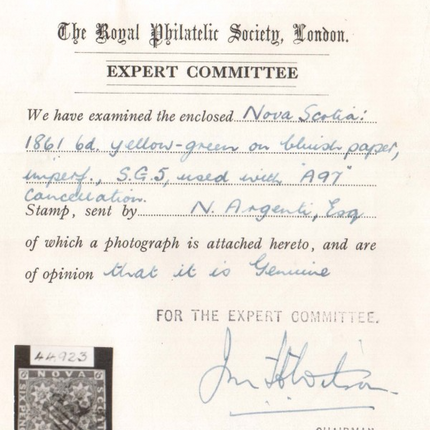 The Royal Philatelic Society, London.
EXPERT COMMITTEE
We have examined the enclosed Nova Scotia:
1861 6d. yellow-green on bluish paper,
imperf., S.G.5, used with "A97"
Cancellation.
Stamp, sent by N. Argenti, Esq
of which a photograph is attached hereto, and are
of opinion that it is Genuine
FOR THE EXPERT COMMITTEE.
44923
NOVA
CHAIRMAN